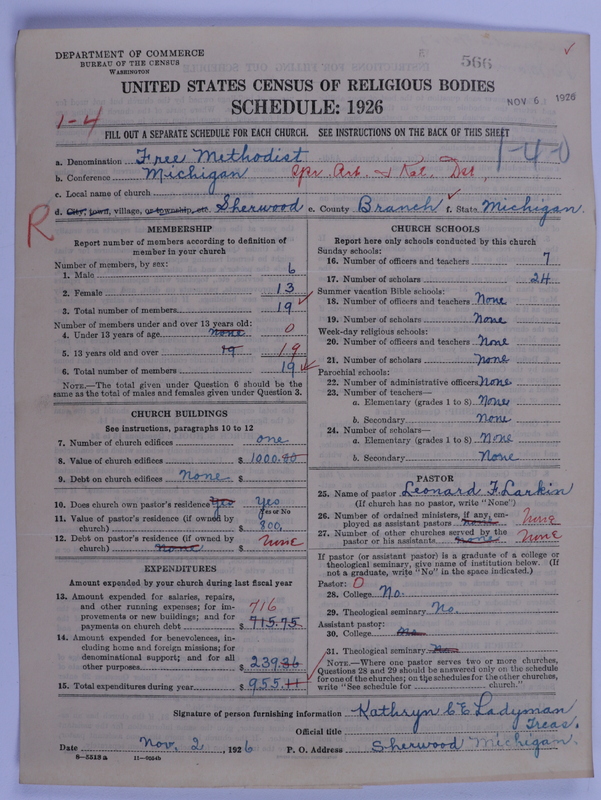 566 ✓
DEPARTMENT OF COMMERCE
BUREAU OF THE CENSUS
WASHINGTON
UNITED STATES CENSUS OF RELIGIOUS BODIES
SCHEDULE: 1926
NOV 6 1926
1-4
FILL OUT A SEPARATE SCHEDULE FOR EACH CHURCH. SEE INSTRUCTIONS ON THE BACK OF THIS SHEET
1-4-0
a. Denomination Free Methodist
b. Conference Michigan Spr. Arb. & Kal. Dst.
c. Local name of church
d. City, town, village, or township, etc. Sherwood e. County Branch ✓ f. State Michigan.
R
MEMBERSHIP
Report number of members according to definition of
member in your church
Number of members, by sex:
1. Male 6
2. Female 13
3. Total number of members 19 ✓
Number of members under and over 13 years old:
4. Under 13 years of age none 0
5. 13 years old and over 19 19
6. Total number of members 19 ✓
NOTE.—The total given under Question 6 should be the
same as the total of males and females given under Question 3.
CHURCH BUILDINGS
See instructions, paragraphs 10 to 12
7. Number of church edifices one
8. Value of church edifices $ 1000.00
9. Debt on church edifices none $
10. Does church own pastor's residence Yes Yes
Yes or No
11. Value of pastor's residence (if owned by
church) $ 800.
12. Debt on pastor's residence (if owned by
church) none $ none
EXPENDITURES
Amount expended by your church during last fiscal year
13. Amount expended for salaries, repairs,
and other running expenses; for im-
provements or new buildings; and for
payments on church debt $ 715.75
716
14. Amount expended for benevolences, in-
cluding home and foreign missions; for
denominational support; and for all
other purposes $ 239.36
15. Total expenditures during year $ 955.11 ✓
CHURCH SCHOOLS
Report here only schools conducted by this church
Sunday schools:
16. Number of officers and teachers 7
17. Number of scholars 24
Summer vacation Bible schools:
18. Number of officers and teachers None
19. Number of scholars None
Week-day religious schools:
20. Number of officers and teachers None
21. Number of scholars None
Parochial schools:
22. Number of administrative officers None
23. Number of teachers—
a. Elementary (grades 1 to 8) None
b. Secondary None
24. Number of scholars—
a. Elementary (grades 1 to 8) None
b. Secondary None
PASTOR
25. Name of pastor Leonard F. Larkin
(If church has no pastor, write "None")
26. Number of ordained ministers, if any, em-
ployed as assistant pastors None None
27. Number of other churches served by the
pastor or his assistants None None
If pastor (or assistant pastor) is a graduate of a college or
theological seminary, give name of institution below. (If
not a graduate, write "No" in the space indicated.)
Pastor: 0
28. College No.
29. Theological seminary No.
Assistant pastor:
30. College No
31. Theological seminary No
NOTE.—Where one pastor serves two or more churches,
Questions 28 and 29 should be answered only on the schedule
for one of the churches; on the schedules for the other churches,
write "See schedule for church."
Signature of person furnishing information Kathryn C E Ladyman
Official title Treas.
Date Nov. 2, 1926 P. O. Address Sherwood Michigan.
8—5513a 11—9054b